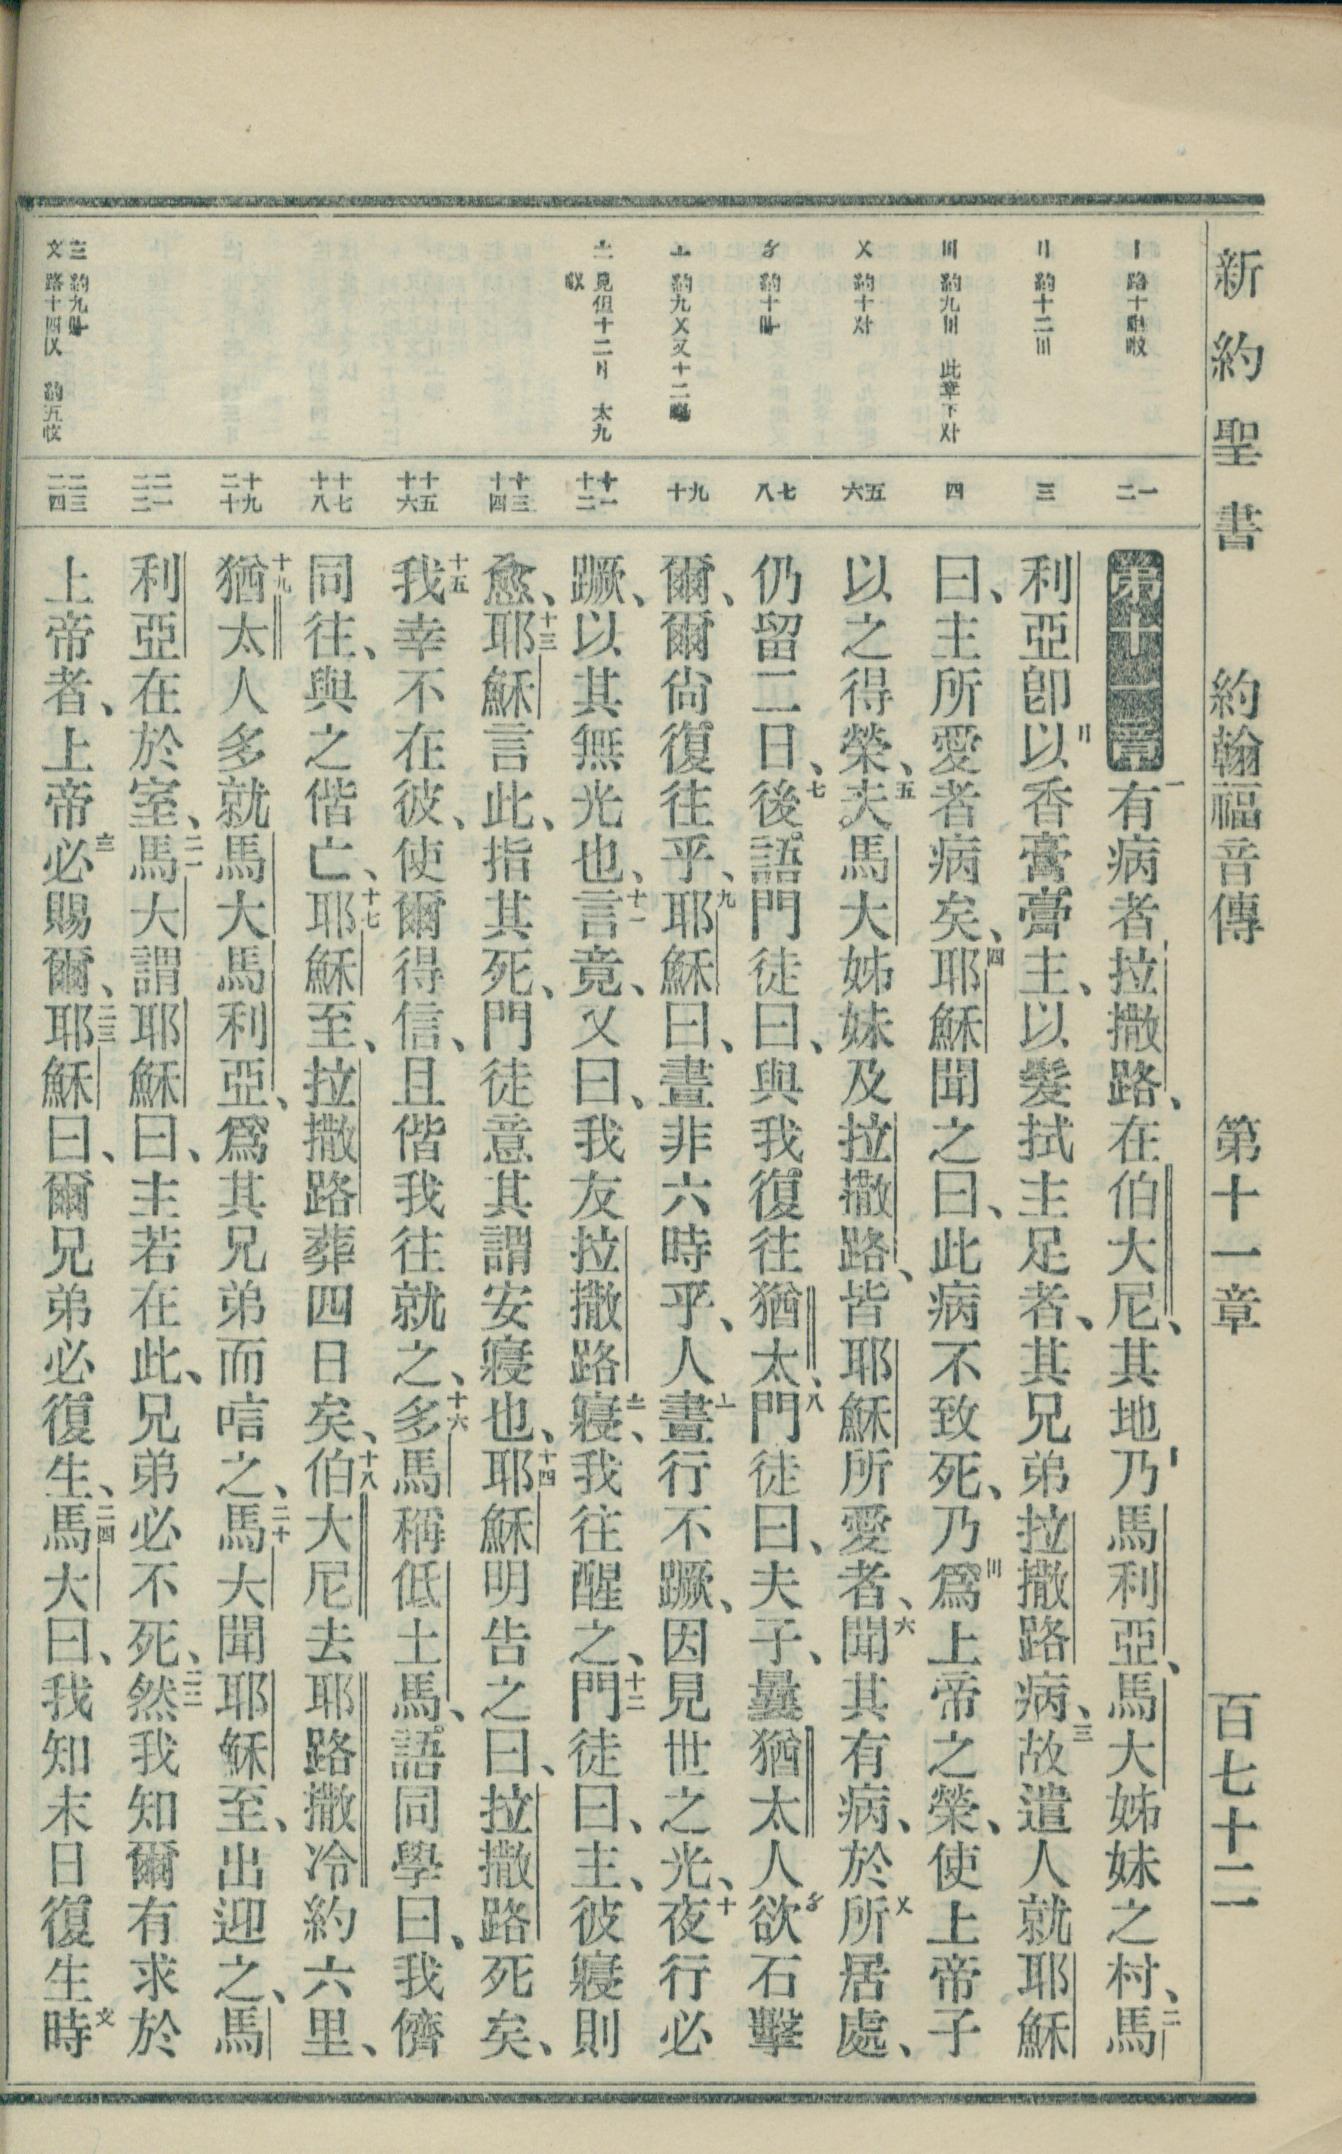 新約聖書 約翰福音傳 第十一章 百七十二
一二
三
四
五六
七八
九十
十一十二
十三十四
十五十六
十七十八
十九二十
二一二二
二三二四
第十一章 一有病者拉撒路、在伯大尼、其地乃馬利亞、馬大姊妹之村、二馬
利亞卽以香膏膏主、以髮拭主足者、其兄弟拉撒路病、三故遣人就耶穌
曰、主所愛者病矣、四耶穌聞之曰、此病不致死、乃爲上帝之榮、使上帝子
以之得榮、五夫馬大姊妹及拉撒路、皆耶穌所愛者、六聞其有病、於所居處、
仍留二日、七後語門徒曰、與我復往猶太、八門徒曰、夫子、曩猶太人欲石擊
爾、爾尙復往乎、九耶穌曰、晝非六時乎、人晝行不蹶、因見世之光、十夜行必
蹶、以其無光也、十一言竟、又曰、我友拉撒路寢、我往醒之、十二門徒曰、主、彼寢則
愈、十三耶穌言此、指其死、門徒意其謂安寢也、十四耶穌明告之曰、拉撒路死矣、
十五我幸不在彼、使爾得信、且偕我往就之、十六多馬稱低土馬、語同學曰、我儕
同往、與之偕亡、十七耶穌至、拉撒路葬四日矣、十八伯大尼去耶路撒冷約六里、
十九猶太人多就馬大馬利亞、爲其兄弟而唁之、二十馬大聞耶穌至、出迎之、馬
利亞在於室、二一馬大謂耶穌曰、主若在此、兄弟必不死、二二然我知爾有求於
上帝者、上帝必賜爾、二三耶穌曰、爾兄弟必復生、二四馬大曰、我知末日復生時